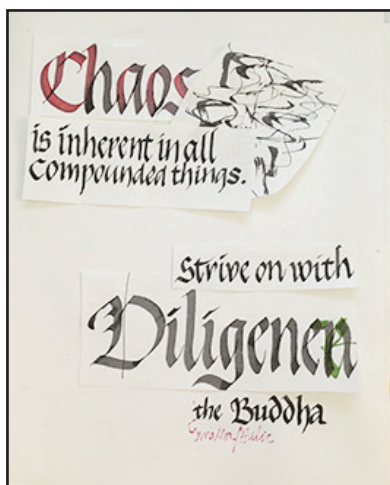 Chaos
is inherent in all
compounded things.
Strive on with
the Buddha